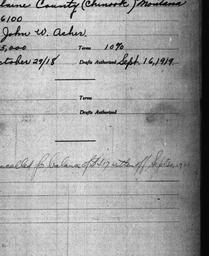 Blaine County (Chinook) Montana
6100
John W. Acher
5,000 Term 10%
October 29/18 Drafts Authorized Sept. 16, 1919
Term
Drafts Authorized
Cancelled for balance of $417 written off